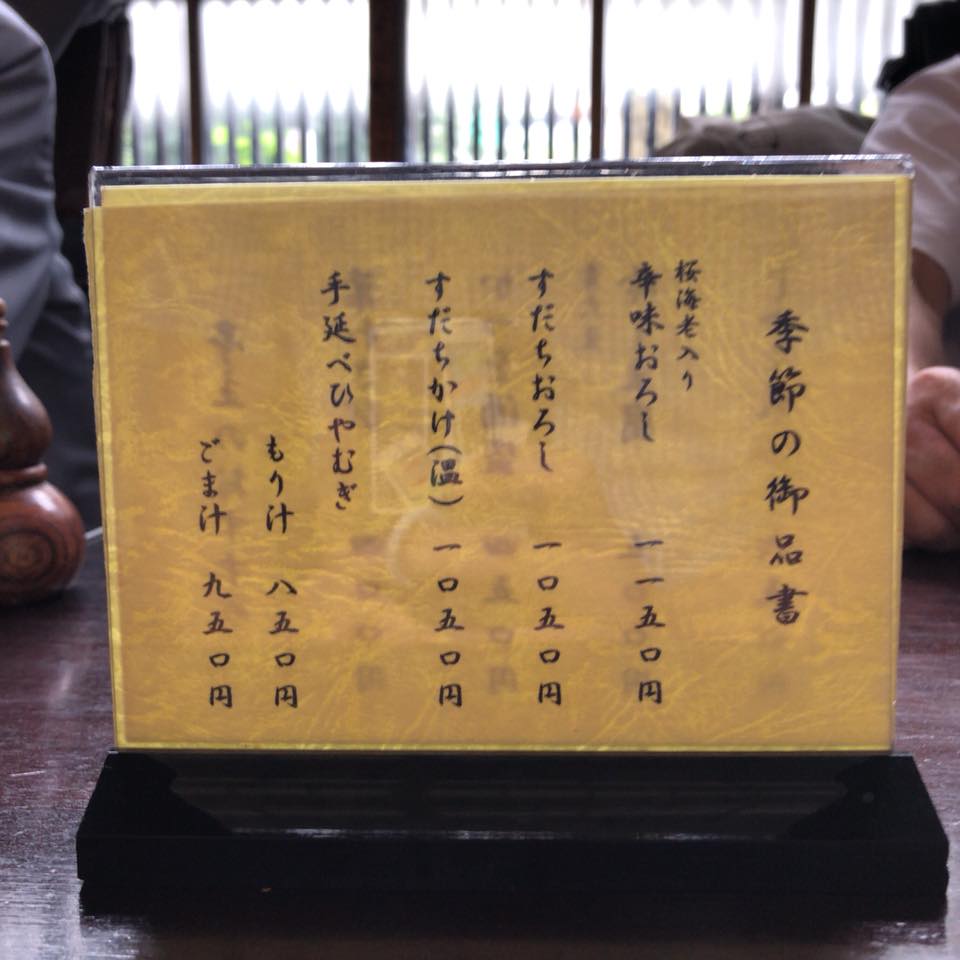 季節の御品書
桜海老入り
辛味おろし 一一五〇円
すだちおろし 一〇五〇円
すだちかけ(温) 一〇五〇円
手延べひやむぎ
もり汁 八五〇円
ごま汁 九五〇円